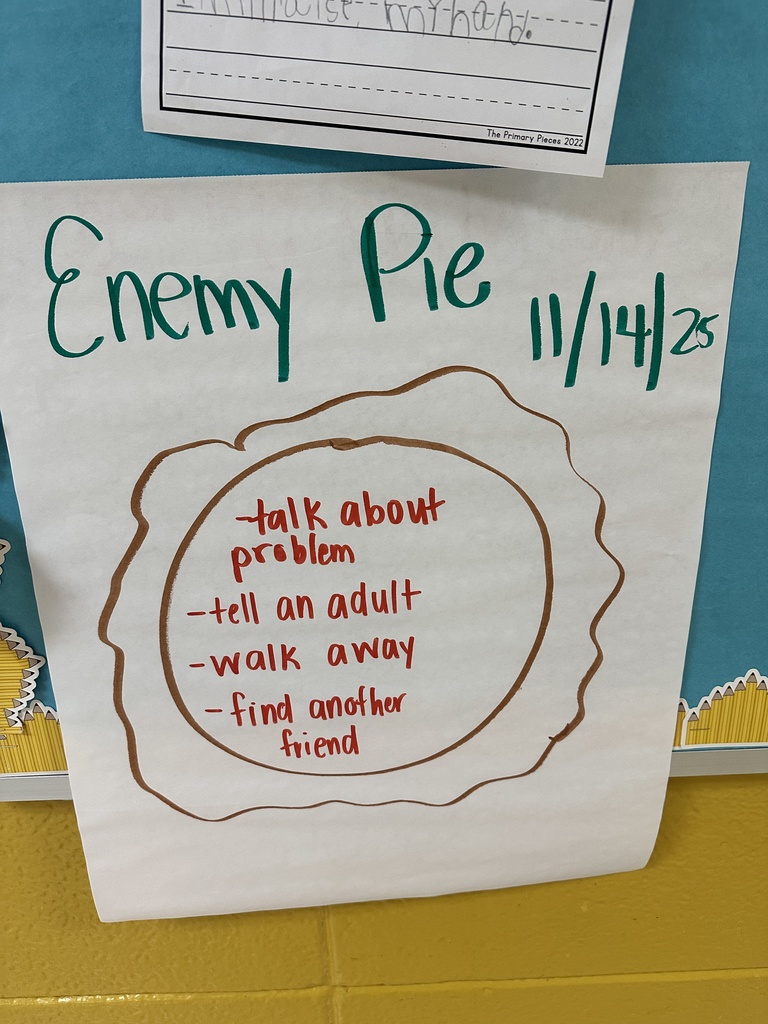 I will raise my hand.
The Primary Pieces 2022
Enemy Pie
11/14/25
-talk about
problem
-tell an adult
-walk away
-find another
friend